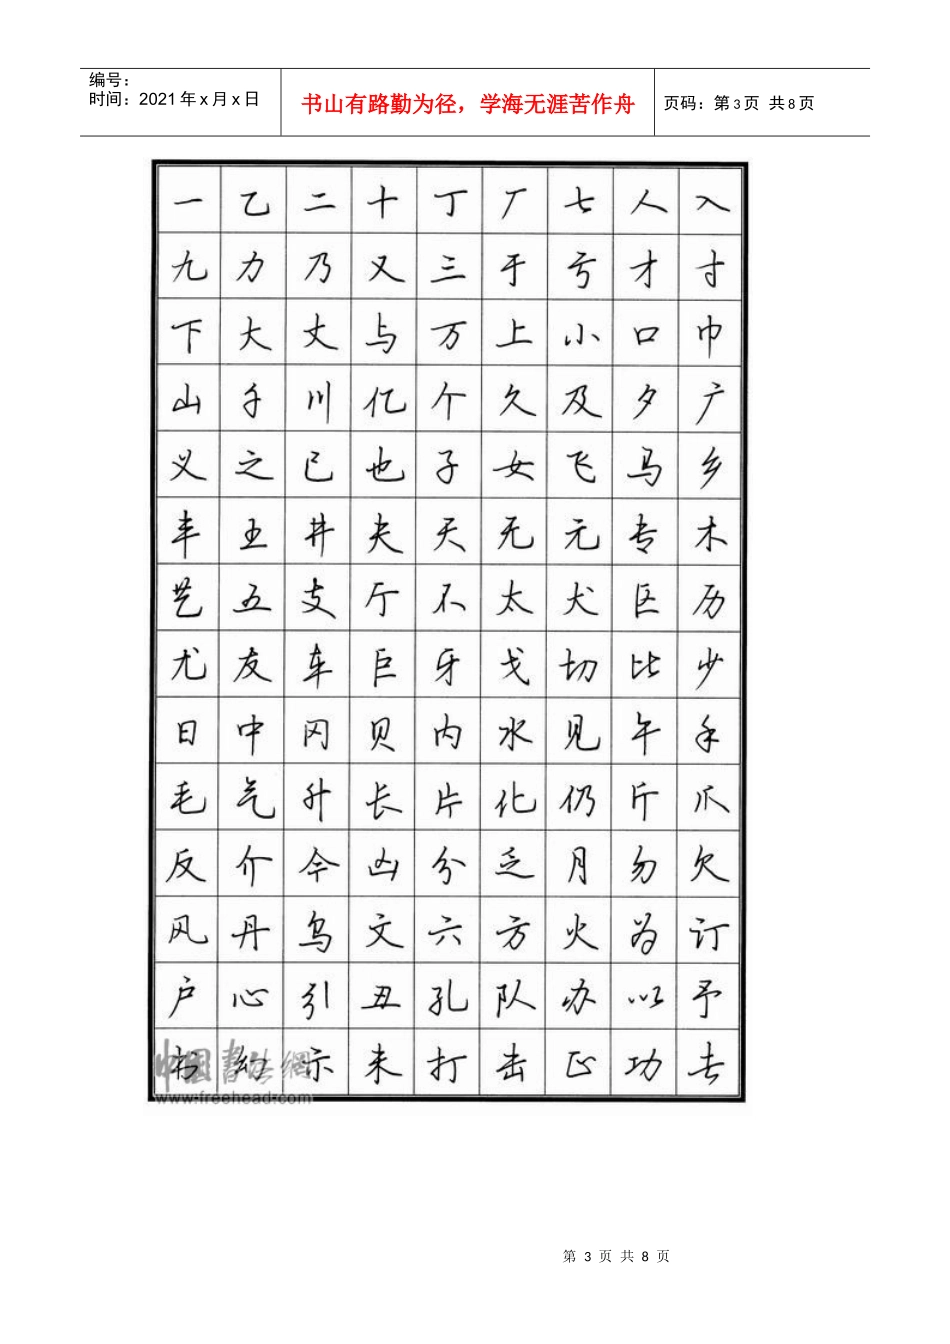 编号：
时间：2021年x月x日
书山有路勤为径，学海无涯苦作舟
页码：第3页 共8页
一 乙 二 十 丁 厂 七 人 入
九 力 乃 又 三 于 亏 才 寸
下 大 丈 与 万 上 小 口 巾
山 千 川 亿 个 久 及 夕 广
义 之 已 也 子 女 飞 马 乡
丰 王 井 夫 天 无 元 专 木
艺 五 支 厅 不 太 犬 区 历
尤 友 车 巨 牙 戈 切 比 少
日 中 冈 贝 内 水 见 午 手
毛 气 升 长 片 化 仍 斤 爪
反 介 今 凶 分 乏 月 勿 欠
风 丹 乌 文 六 方 火 为 订
户 心 引 丑 孔 队 办 以 予
书 幻 示 未 打 击 正 功 去
中国书法網
www.freehead.com
第 3 页 共 8 页